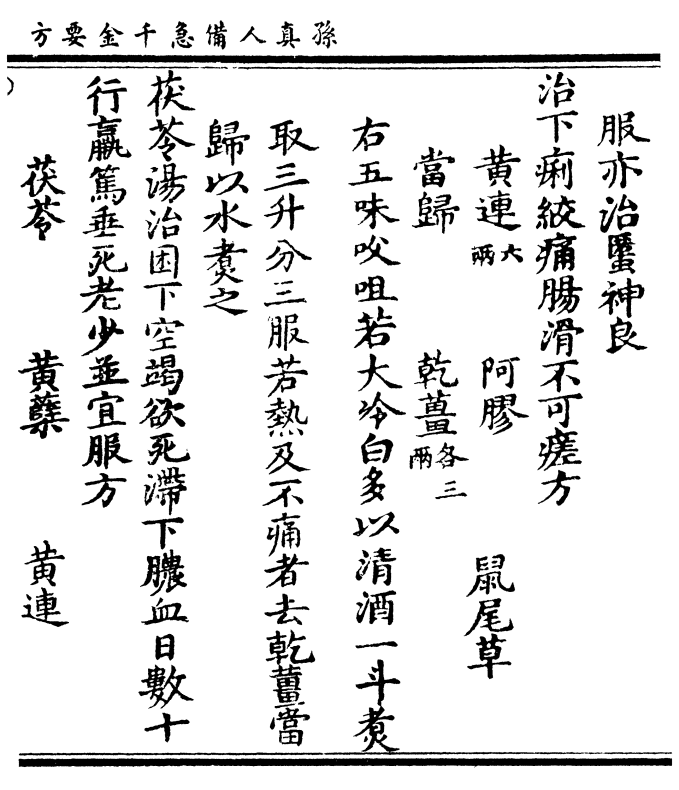 孫真人備急千金要方
服亦治䘌神良
治下痢絞痛腸滑不可瘥方
黃連六兩 阿膠 鼠尾草
當歸 乾薑各三兩
右五味㕮咀若大冷白多以清酒一斗煑
取三升分三服若熱及不痛者去乾薑當
歸以水煑之
茯苓湯治困下空竭欲死滯下膿血日數十
行羸篤垂死老少並宜服方
茯苓 黃蘗 黃連